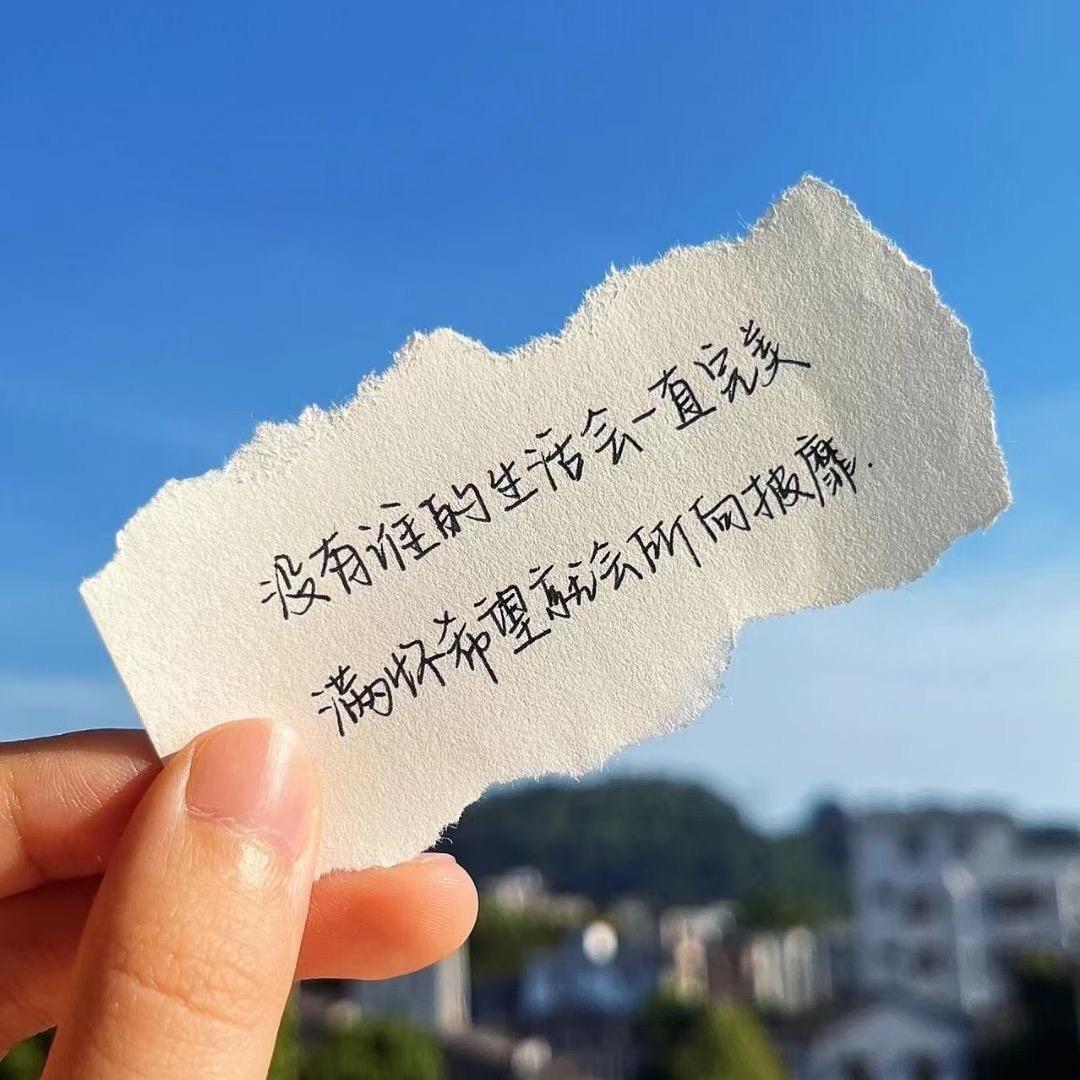 没有谁的生活会一直完美
满怀希望就会所向披靡.